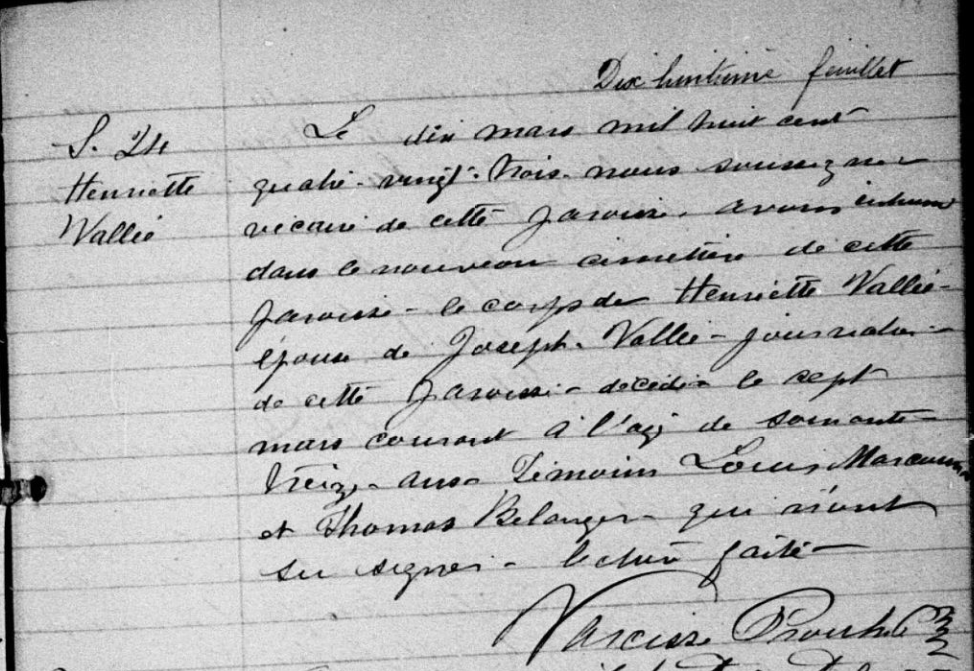 Dix huitième feuillet
S. 24
Henriette
Vallié
Le dix mars mil huit cent
quatre-vingt-trois-nous soussigné
vicaire de cette paroisse, avons inhumé
dans le nouveau cimetière de cette
paroisse - le corps de Henriette Vallié -
épouse de Joseph Vallié - journalier -
de cette paroisse - décédée le sept
mars courant à l'age de soixante -
treize ans Témoins Louis
et Thomas Belanger - qui n'ont
su signer - lecture faite -
Narcisse Proulx